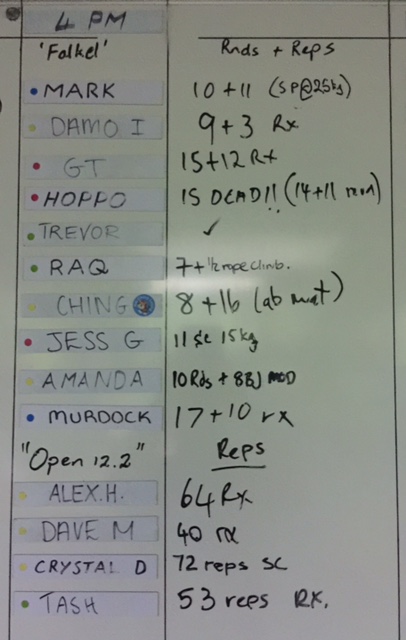 4 PM
'Falkel' Rnds + Reps
MARK 10 + 11 (SP@25kg)
DAMO I 9 + 3 Rx
GT 15 + 12 Rx
HOPPO 15 DEAD!! (14 + 11
TREVOR ✓
RAQ 7 + 1/2 rope climb.
CHING 8 + 16 (ab mat)
JESS G 11 sc 15kg
AMANDA 10 Rds + 8BJ MOD
MURDOCK 17 + 10 rx
"Open 12.2" Reps
ALEX.H. 64 Rx
DAVE M 40 rx
CRYSTAL D 72 reps SC
TASH 53 reps RX.